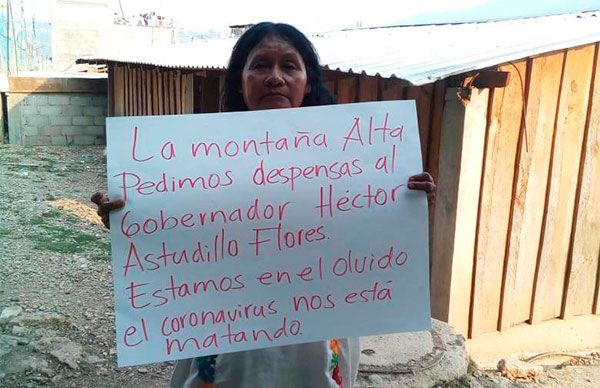 La montaña Alta
Pedimos despensas al
Gobernador Héctor
Astudillo Flores.
Estamos en el olvido
el coronavirus nos está
matando.